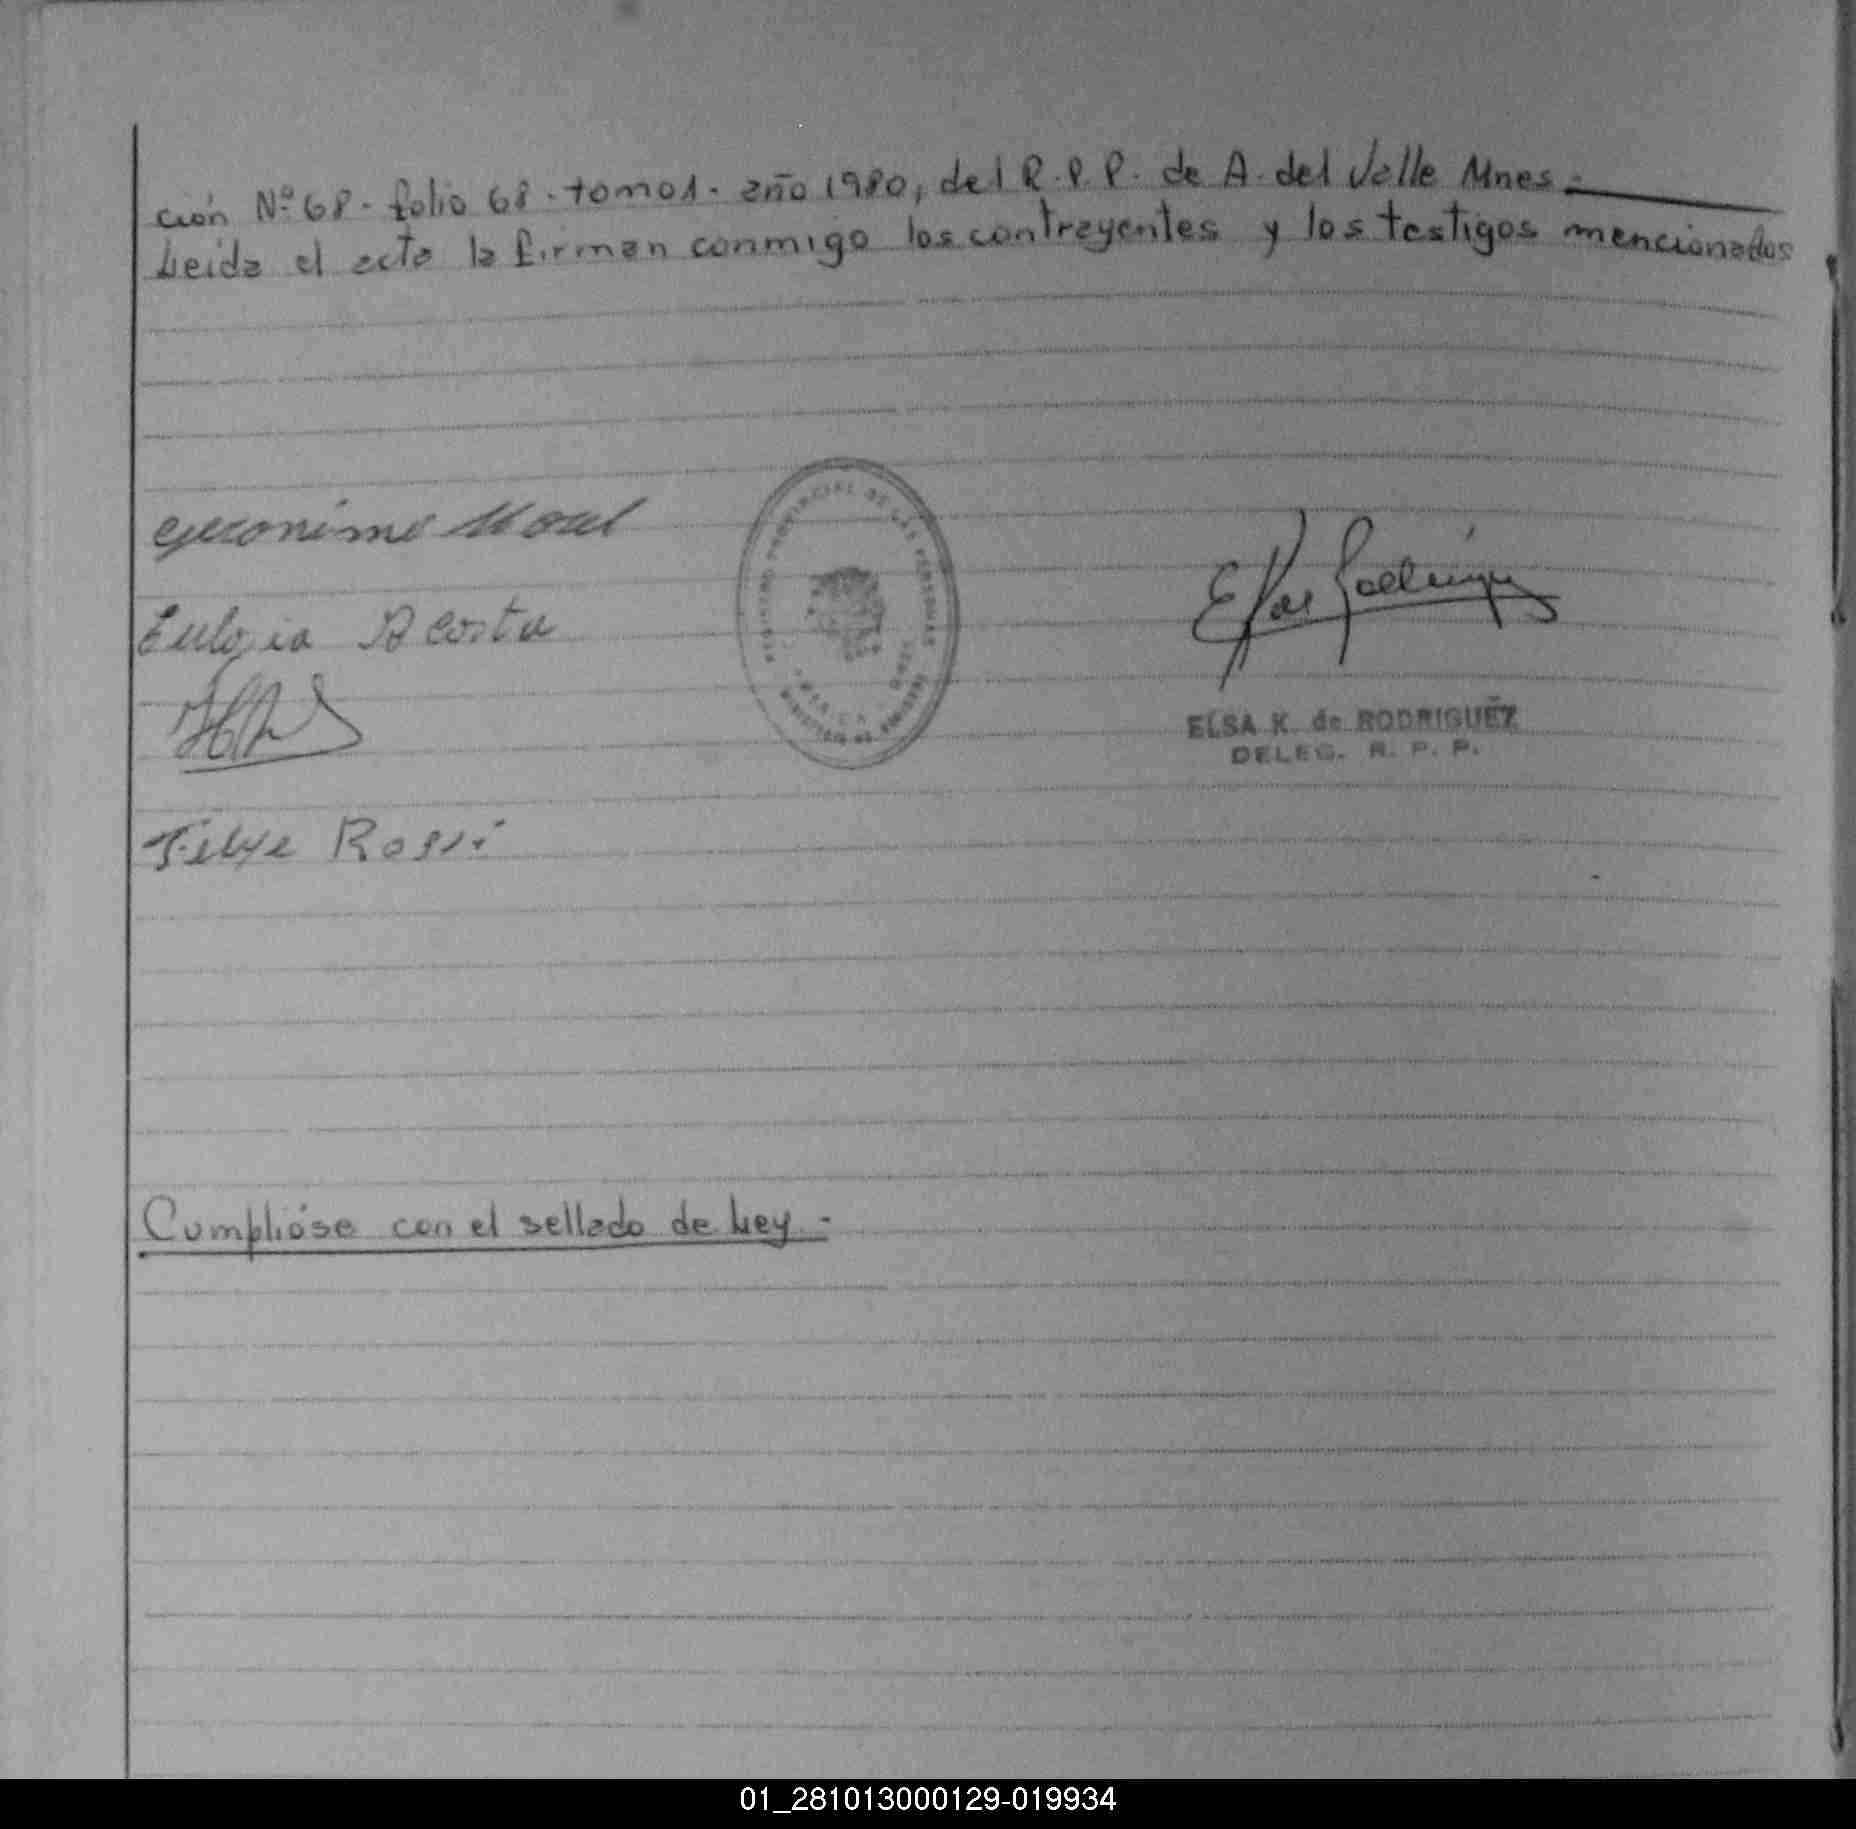 ción Nº 68 - folio 68 - tomo 1 - año 1980, del R.P.P. de A. del Valle Mnes -
Leida el acta la firman conmigo los contrayentes y los testigos mencionados
Geronimo Morel
Eulogia Acosta
REGISTRO PROVINCIAL DE LAS PERSONAS
MINISTERIO DE GOBIERNO
ELSA K. de RODRIGUEZ
DELEG. R. P. P.
Felipe Rossi
Cumplióse con el sellado de Ley -
01_281013000129-019934